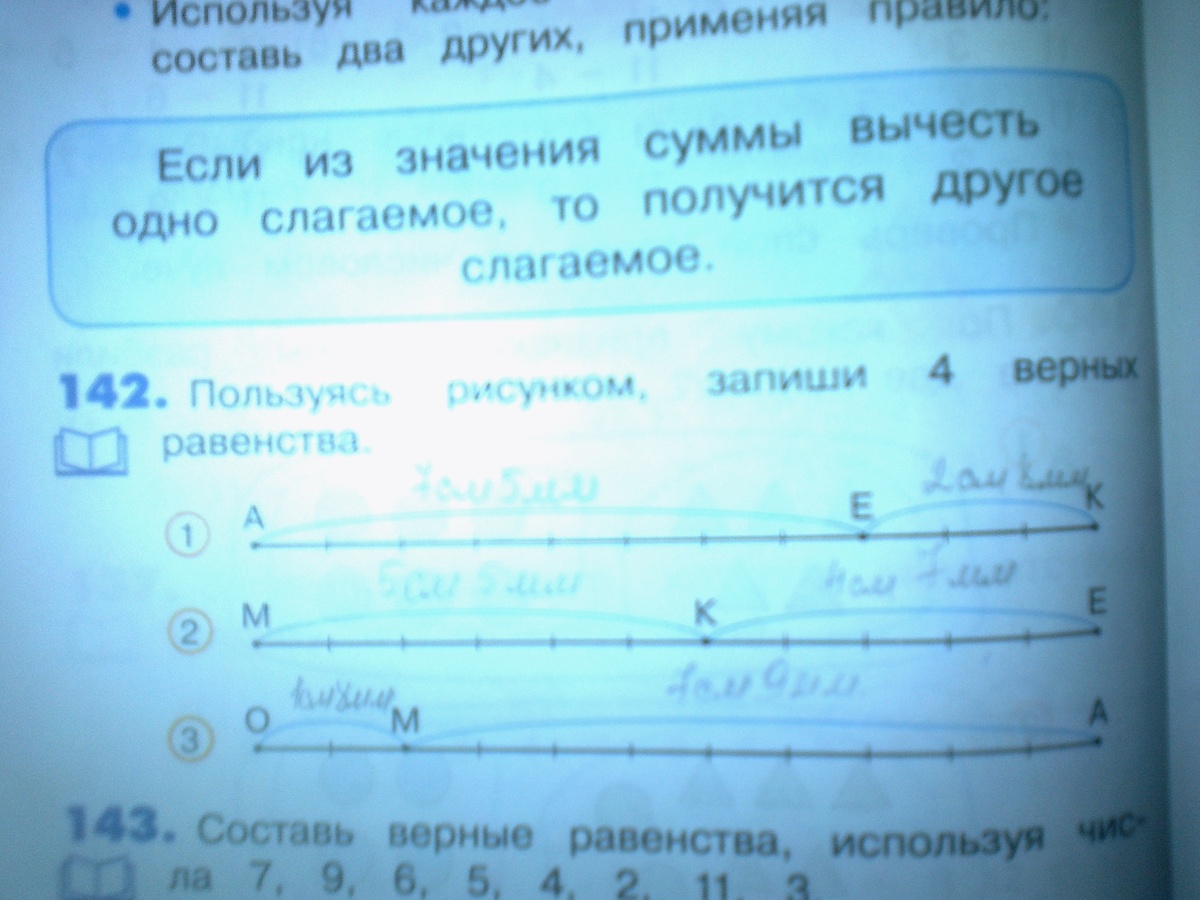 • Используя каждое
составь два других, применяя правило:
Если из значения суммы вычесть
одно слагаемое, то получится другое
слагаемое.
142. Пользуясь рисунком, запиши 4 верных
равенства.
7см 5мм 2см 8мм
1 А Е К
5см 5мм 4см 7мм
2 М К Е
7см 9мм
3 О М А
143. Составь верные равенства, используя чис-
ла 7, 9, 6, 5, 4, 2, 11, 3.